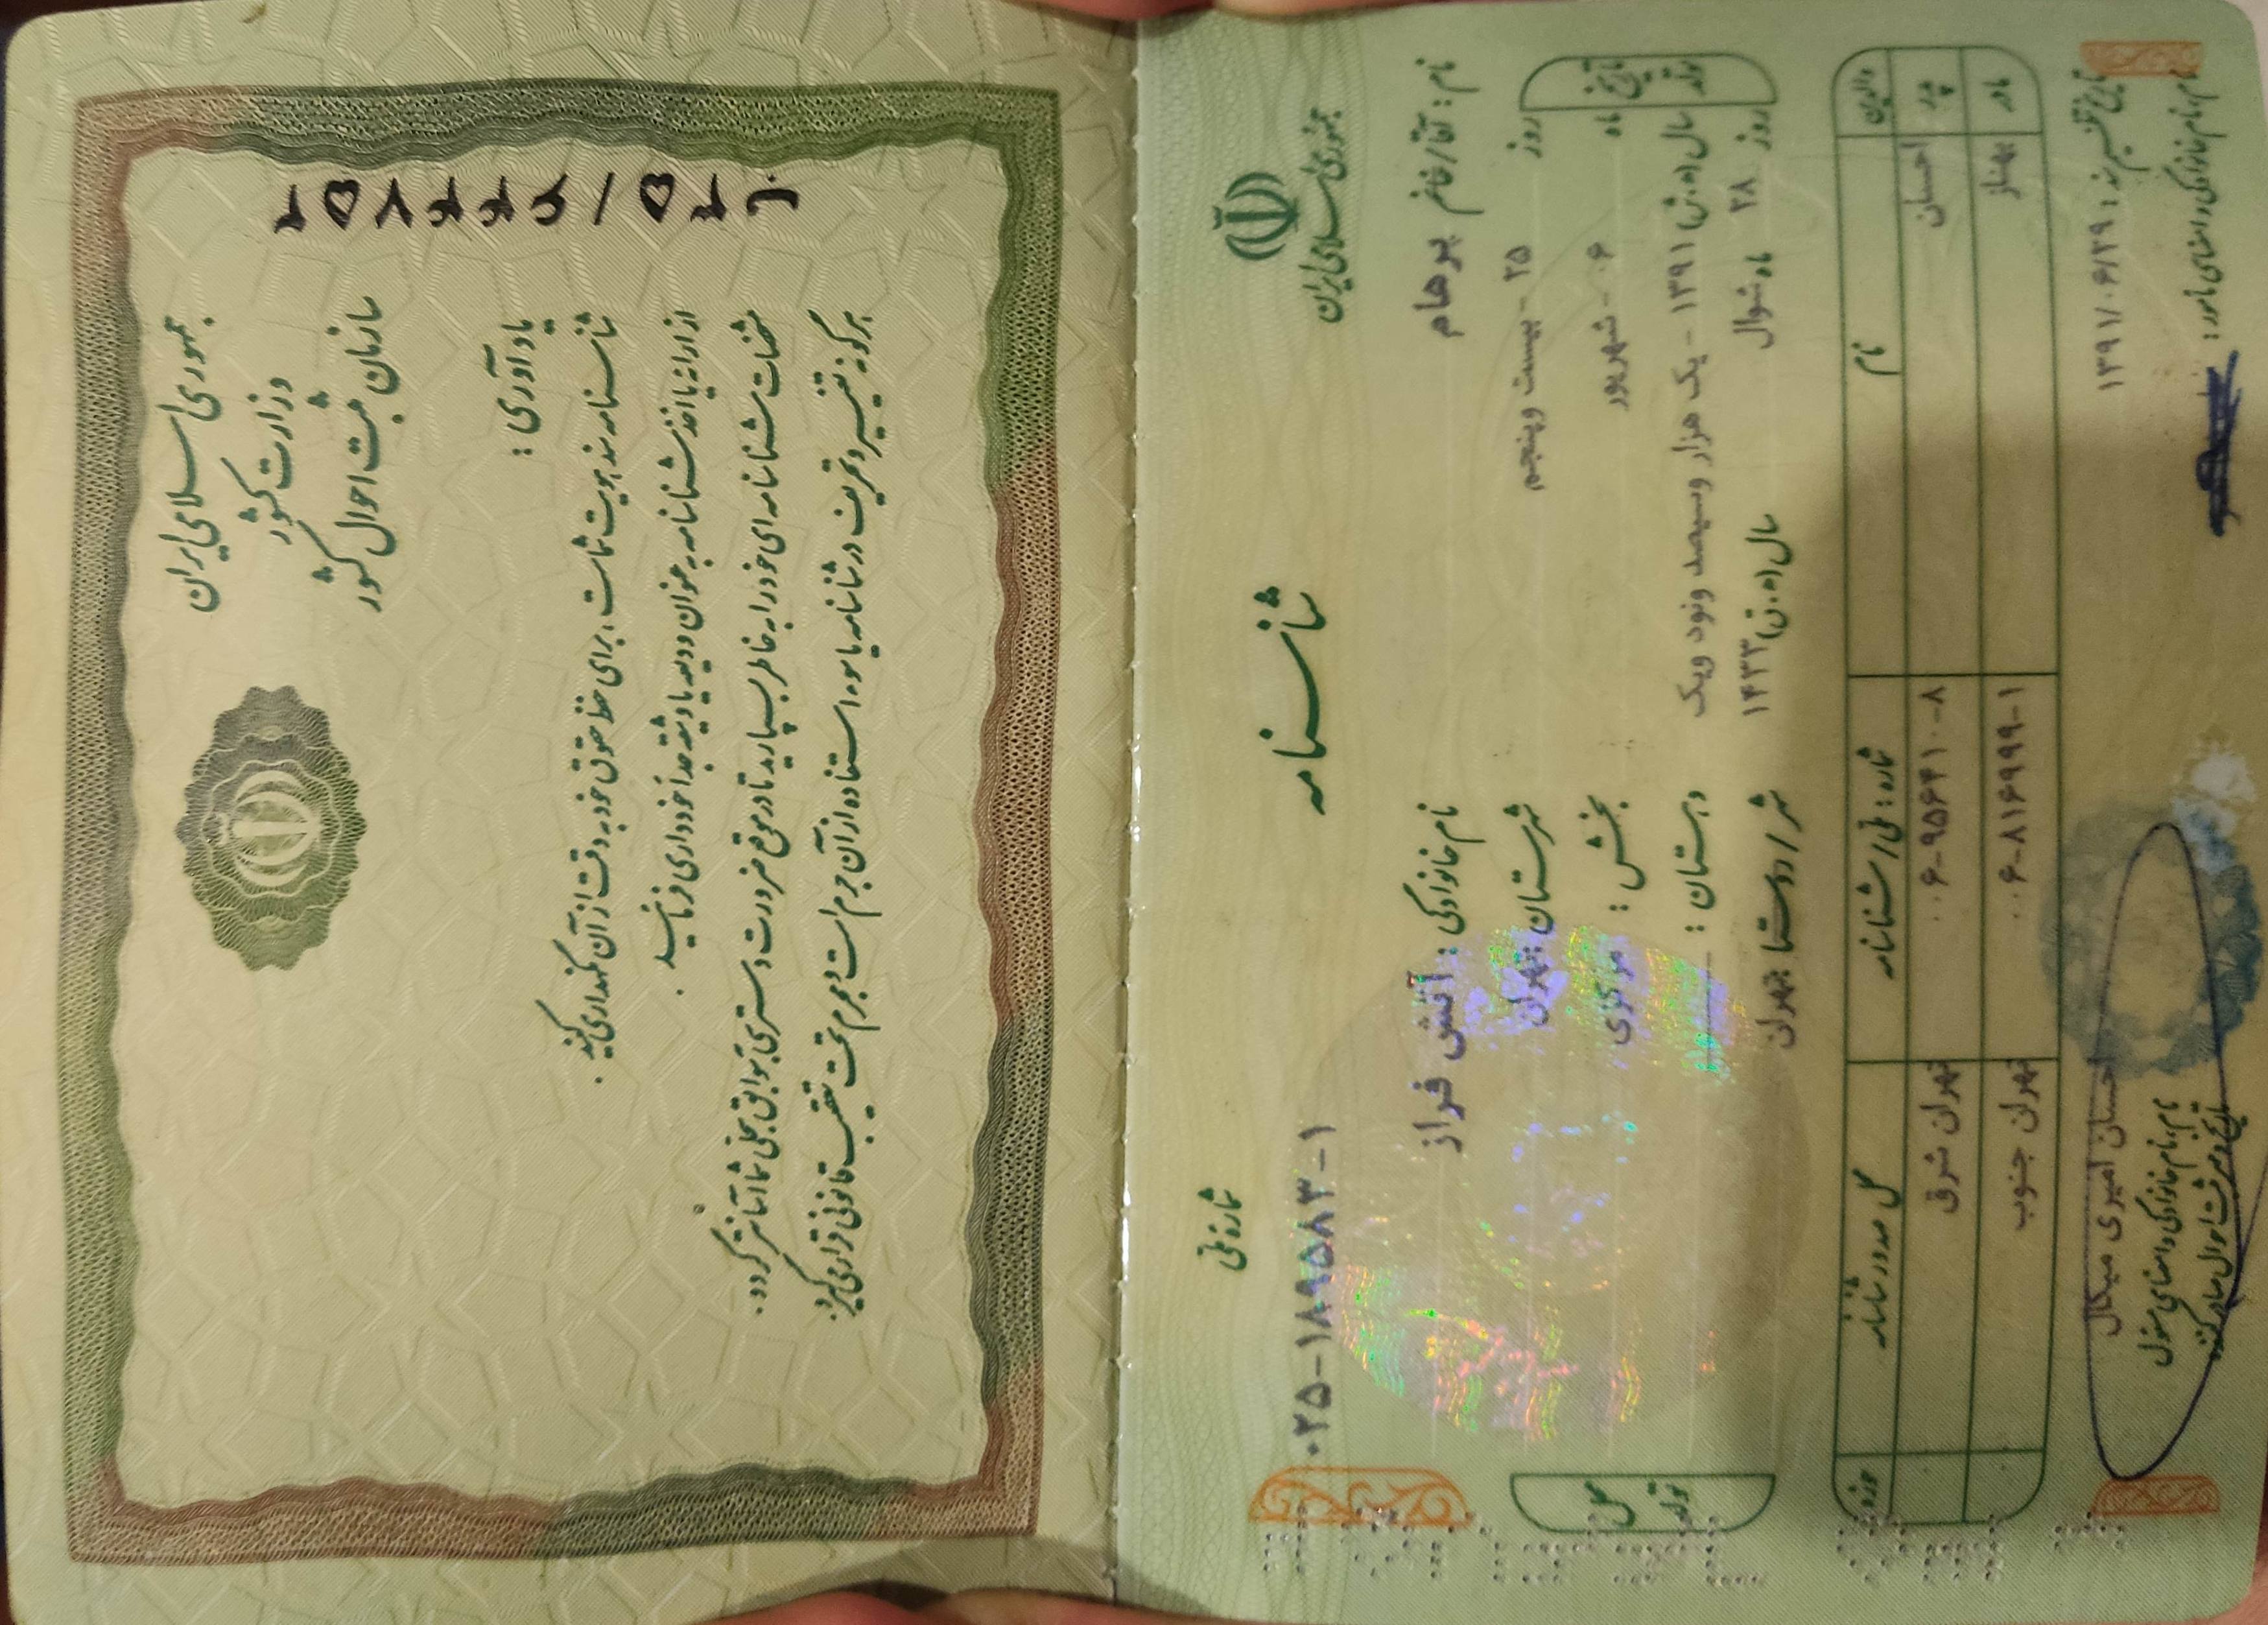 جمهوری اسلامی ایران
وزارت کشور
سازمان ثبت احوال کشور
یادآوری :
شناسنامه سند هویت شماست ، برای حفظ حقوق خود به دقت از آن نگهداری کنید .
از ارائه یا اخذ شناسنامه به عنوان ودیعه یا وثیقه جداً خودداری فرمائید .
مشخصات شناسنامه ای خود را به خاطر بسپارید تا در موقع ضرورت دسترسی به سوابق سجلی شما آسانتر گردد .
هرگونه تغییر و تحریف در شناسنامه یا سوء استفاده از آن جرم است و مجرم تحت تعقیب قانونی قرار می گیرد .
جمهوری اسلامی ایران
شناسنامه
شماره ملی
۰۲۵-۱۸۹۵۸۳-۱
نام : آقا/خانم پرهام
نام خانوادگی : آتش فراز
تاریخ تولد
روز ۲۵ - بیست وپنجم
ماه ۰۶ - شهریور
سال (ه.ش) ۱۳۹۱ - یک هزار وسیصد ونود ویک
روز ۲۸ ماه شوال سال (ه.ق) ۱۴۳۳
محل تولد
شهرستان : تهران
بخش : مرکزی
دهستان : ــــــ
شهر / روستا : تهران
والدین نام شماره : ملی / شناسنامه محل صدور شناسنامه حوزه
پدر احسان ۰۰۶-۹۵۶۴۱۰-۸ تهران شرق
مادر بهناز ۰۰۶-۸۱۶۹۹۹-۱ تهران جنوب
تاریخ تنظیم سند : ۱۳۹۱/۰۶/۲۹
نام، نام خانوادگی و امضای مامور :
احسان امیری میکال
نام، نام خانوادگی و امضای مسئول
تاریخ و مهر ثبت احوال صادر کننده